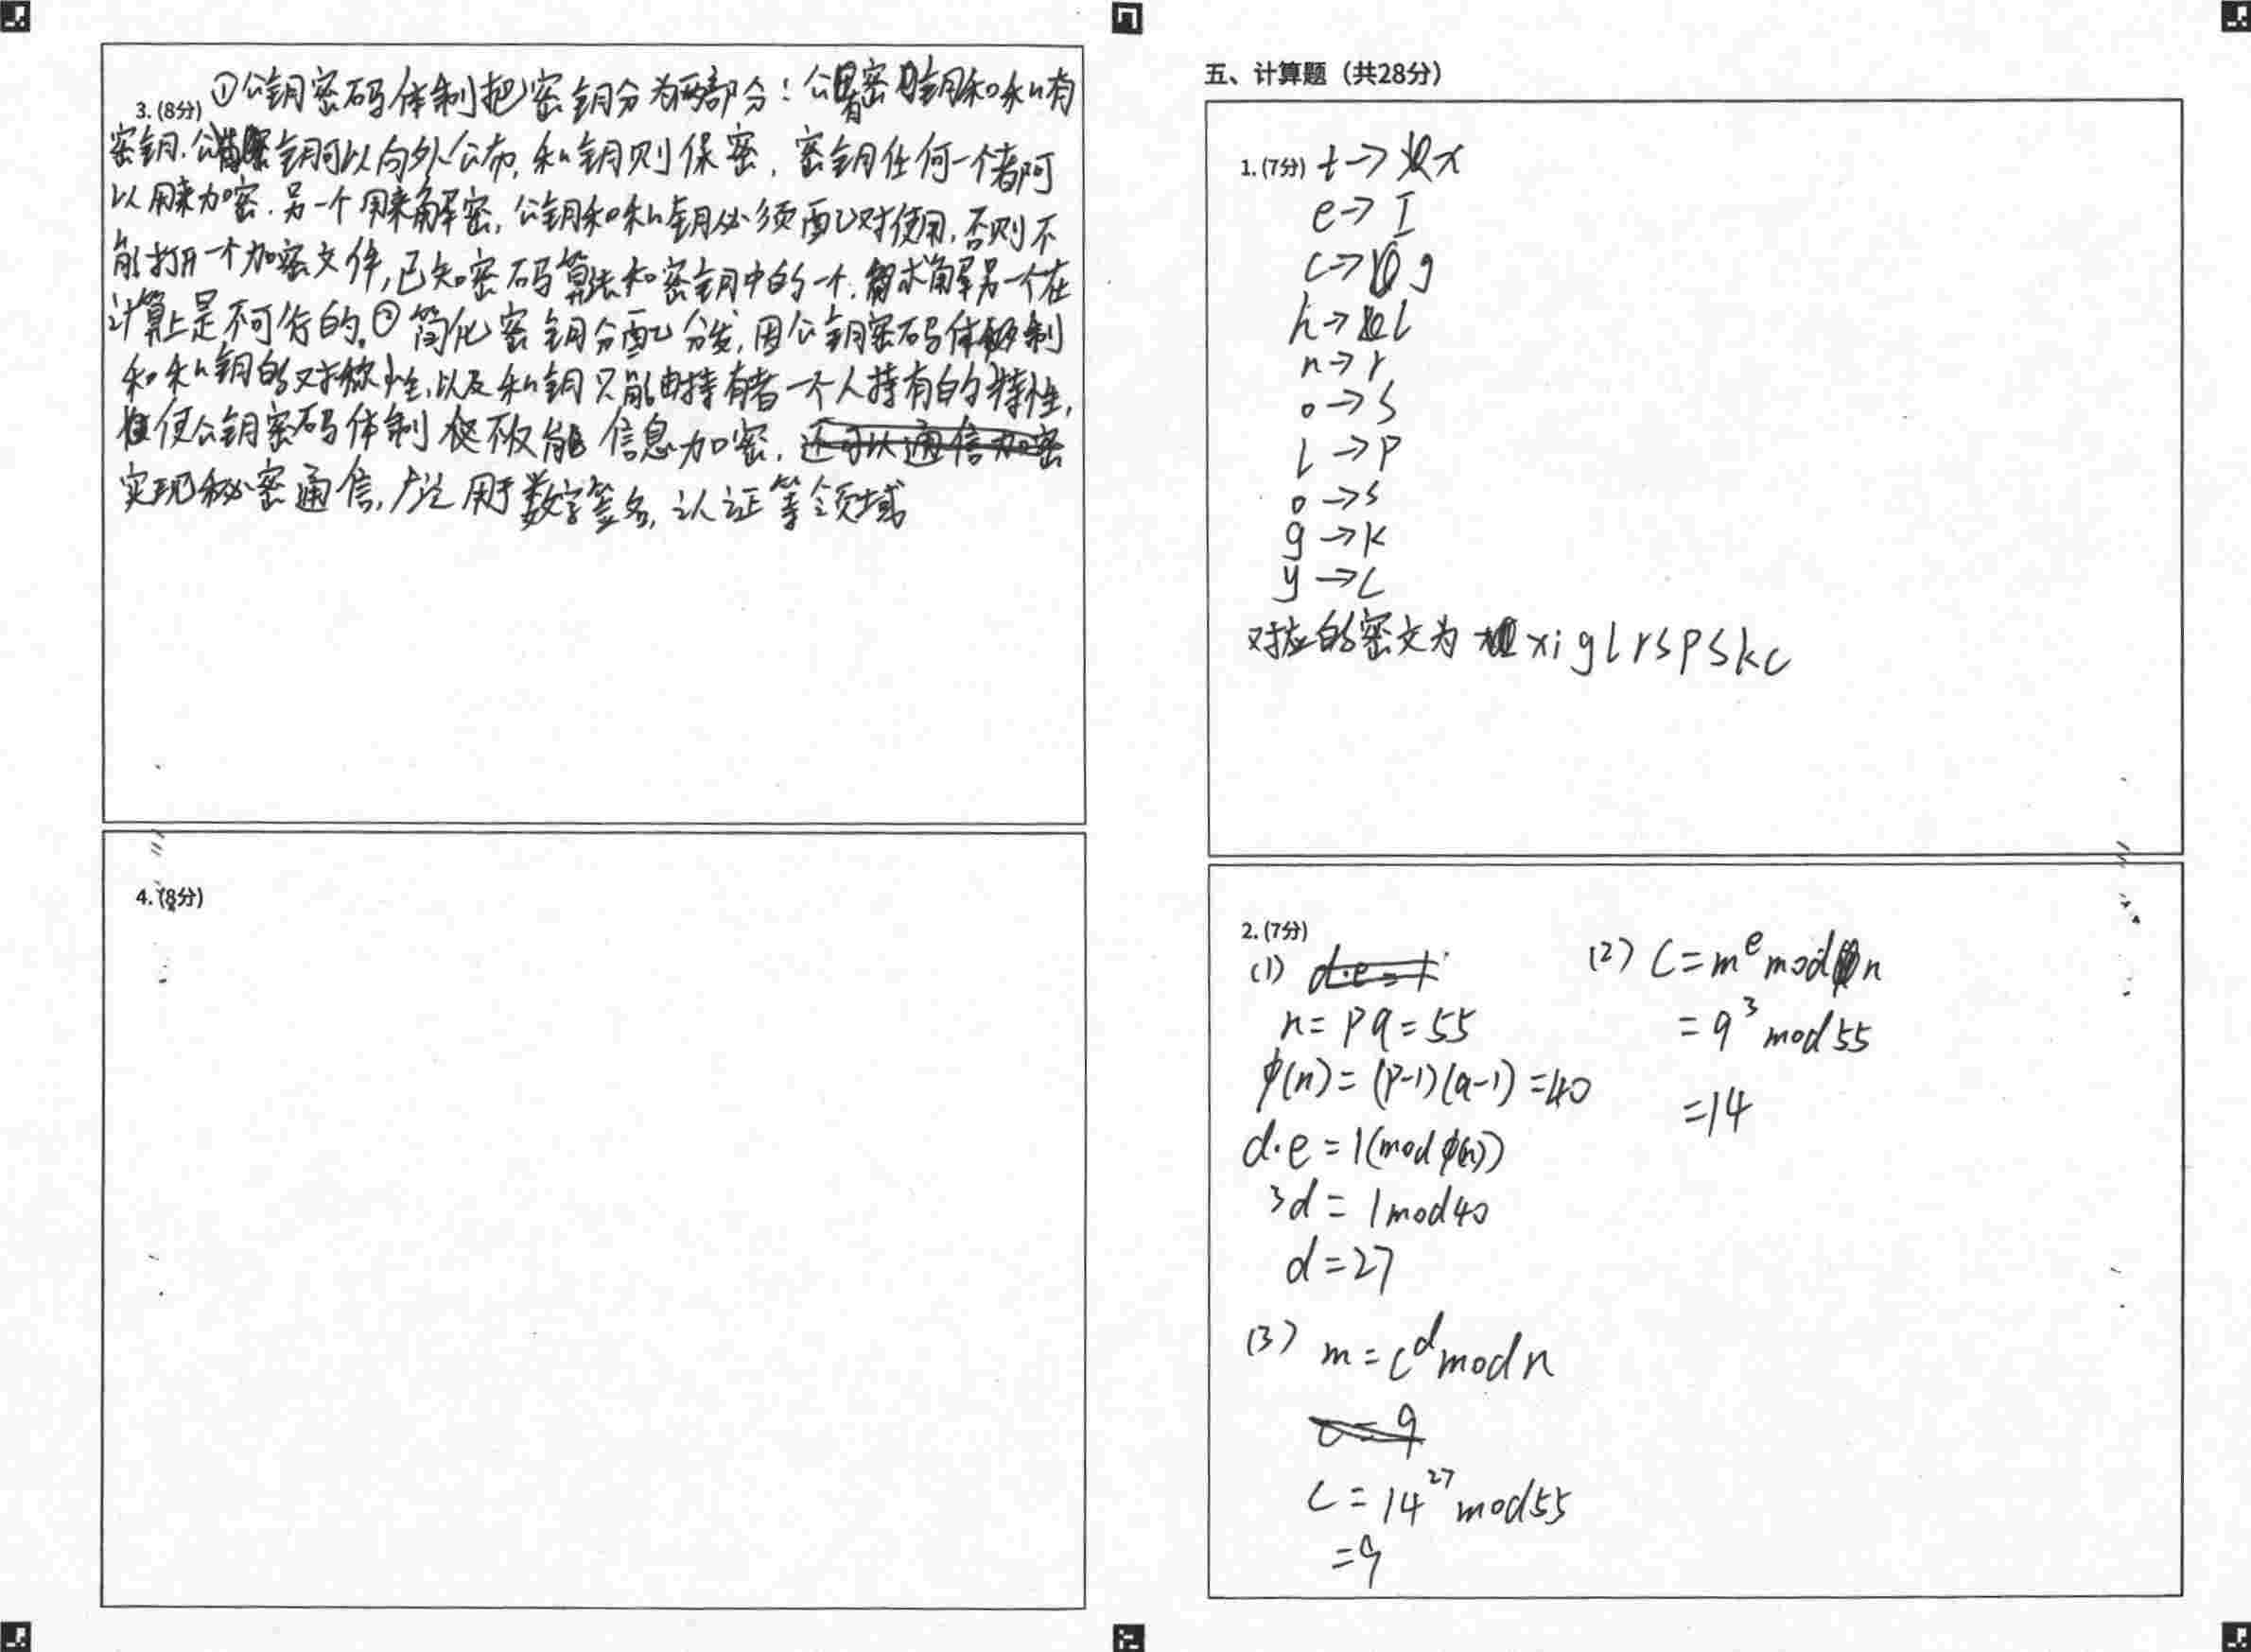 3. (8分) ①公钥密码体制把密钥分为两部分：公有密钥和私有
密钥.公钥可以向外公布,私钥则保密,密钥任何一个都可
以用来加密.另一个用来解密,公钥和私钥必须配对使用,否则不
能打开一个加密文件,已知密码算法和密钥中的一个,求解另一个在
计算上是不可行的。②简化密钥分配分发,因公钥密码体制
和私钥的对称性,以及私钥只能由持有者一个人持有的特性,
使公钥密码体制不仅能信息加密,
实现秘密通信,广泛用于数字签名,认证等领域
4. (8分)
五、计算题（共28分）
1. (7分) t→x
e→I
c→g
h→l
n→r
o→s
l→p
o→s
g→k
y→c
对应的密文为 xiglrspskc
2. (7分)
(1) d·e=1
n=pq=55
φ(n)=(p-1)(q-1)=40
d·e=1(mod φ(n))
3d=1mod40
d=27
(2) C=m^e mod n
=9^3 mod55
=14
(3) m=c^d mod n
c=9
c=14^27 mod55
=9